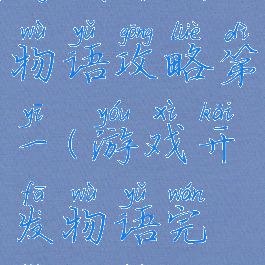 wù yǔ gōng lüè dì
物语攻略第
yī yóu xì kāi
一(游戏开
fā wù yǔ wán
发物语完